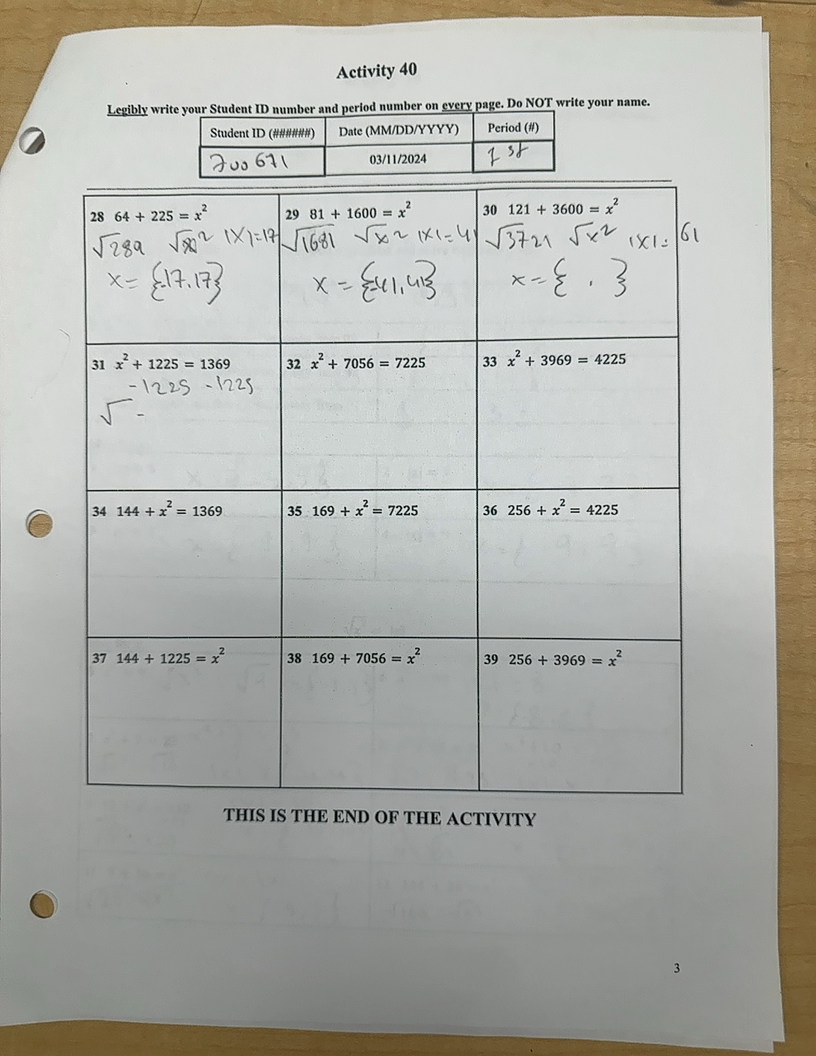 Activity 40
Legibly write your Student ID number and period number on every page. Do NOT write your name.
Student ID (######) Date (MM/DD/YYYY) Period (#)
700671 03/11/2024 1st
28 64 + 225 = x²
√289 √x² |x|=17
x = {-17,17}
29 81 + 1600 = x²
√1681 √x² |x|=41
x = {-41,41}
30 121 + 3600 = x²
√3721 √x² |x|= 61
x = { , }
31 x² + 1225 = 1369
-1225 -1225
√ -
32 x² + 7056 = 7225
33 x² + 3969 = 4225
34 144 + x² = 1369
35 169 + x² = 7225
36 256 + x² = 4225
37 144 + 1225 = x²
38 169 + 7056 = x²
39 256 + 3969 = x²
THIS IS THE END OF THE ACTIVITY
3